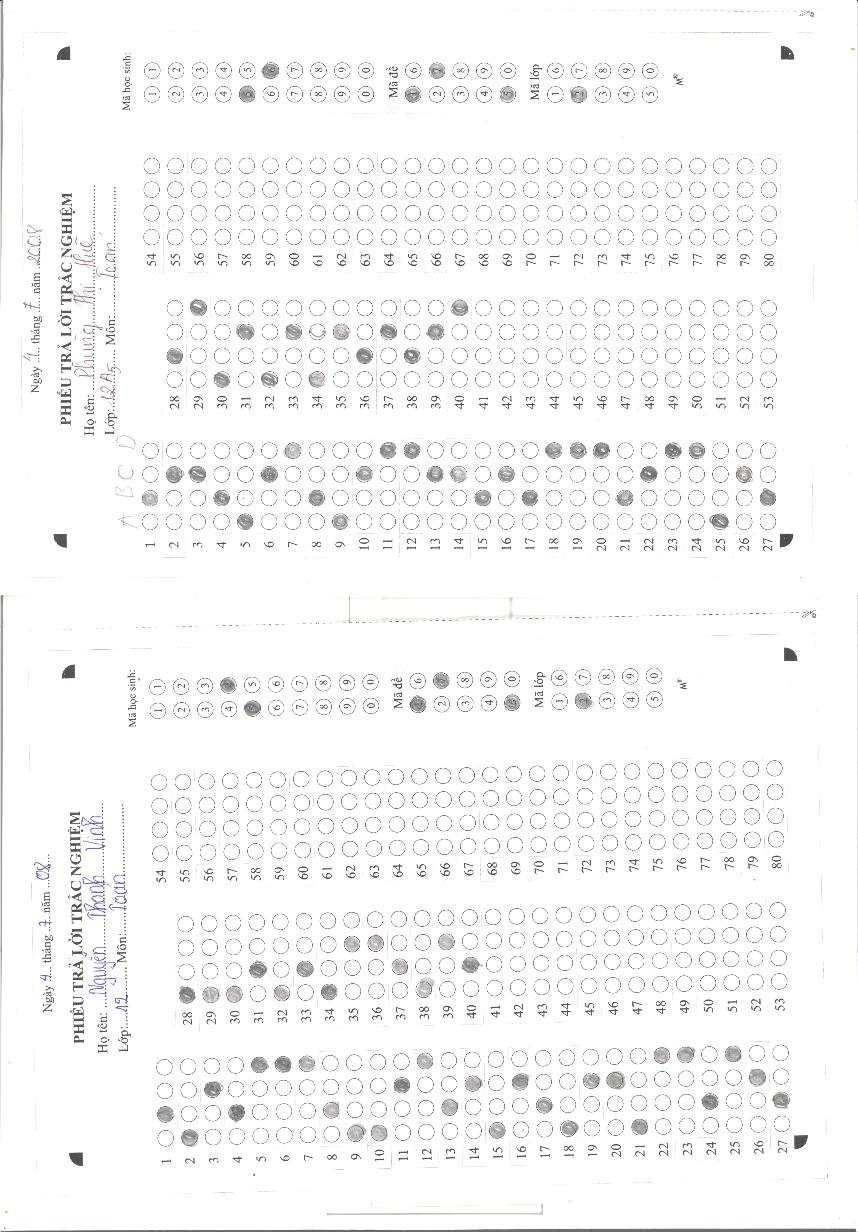 Ngày 4 tháng 7 năm 2008
PHIẾU TRẢ LỜI TRẮC NGHIỆM
Họ tên: Phùng Thị Huê
Lớp: 12A5 Môn: Toán
A B C D
1
2
3
4
5
6
7
8
9
10
11
12
13
14
15
16
17
18
19
20
21
22
23
24
25
26
27
28
29
30
31
32
33
34
35
36
37
38
39
40
41
42
43
44
45
46
47
48
49
50
51
52
53
54
55
56
57
58
59
60
61
62
63
64
65
66
67
68
69
70
71
72
73
74
75
76
77
78
79
80
Mã học sinh:
1 1
2 2
3 3
4 4
5 5
6 6
7 7
8 8
9 9
0 0
Mã đề
1 6
2 7
3 8
4 9
5 0
Mã lớp
1 6
2 7
3 8
4 9
5 0
Ngày 4 tháng 7 năm 08
PHIẾU TRẢ LỜI TRẮC NGHIỆM
Họ tên: Nguyễn Thanh Vinh
Lớp: 12 Môn: Toán
1
2
3
4
5
6
7
8
9
10
11
12
13
14
15
16
17
18
19
20
21
22
23
24
25
26
27
28
29
30
31
32
33
34
35
36
37
38
39
40
41
42
43
44
45
46
47
48
49
50
51
52
53
54
55
56
57
58
59
60
61
62
63
64
65
66
67
68
69
70
71
72
73
74
75
76
77
78
79
80
Mã học sinh:
1 1
2 2
3 3
4 4
5 5
6 6
7 7
8 8
9 9
0 0
Mã đề
1 6
2 7
3 8
4 9
5 0
Mã lớp
1 6
2 7
3 8
4 9
5 0